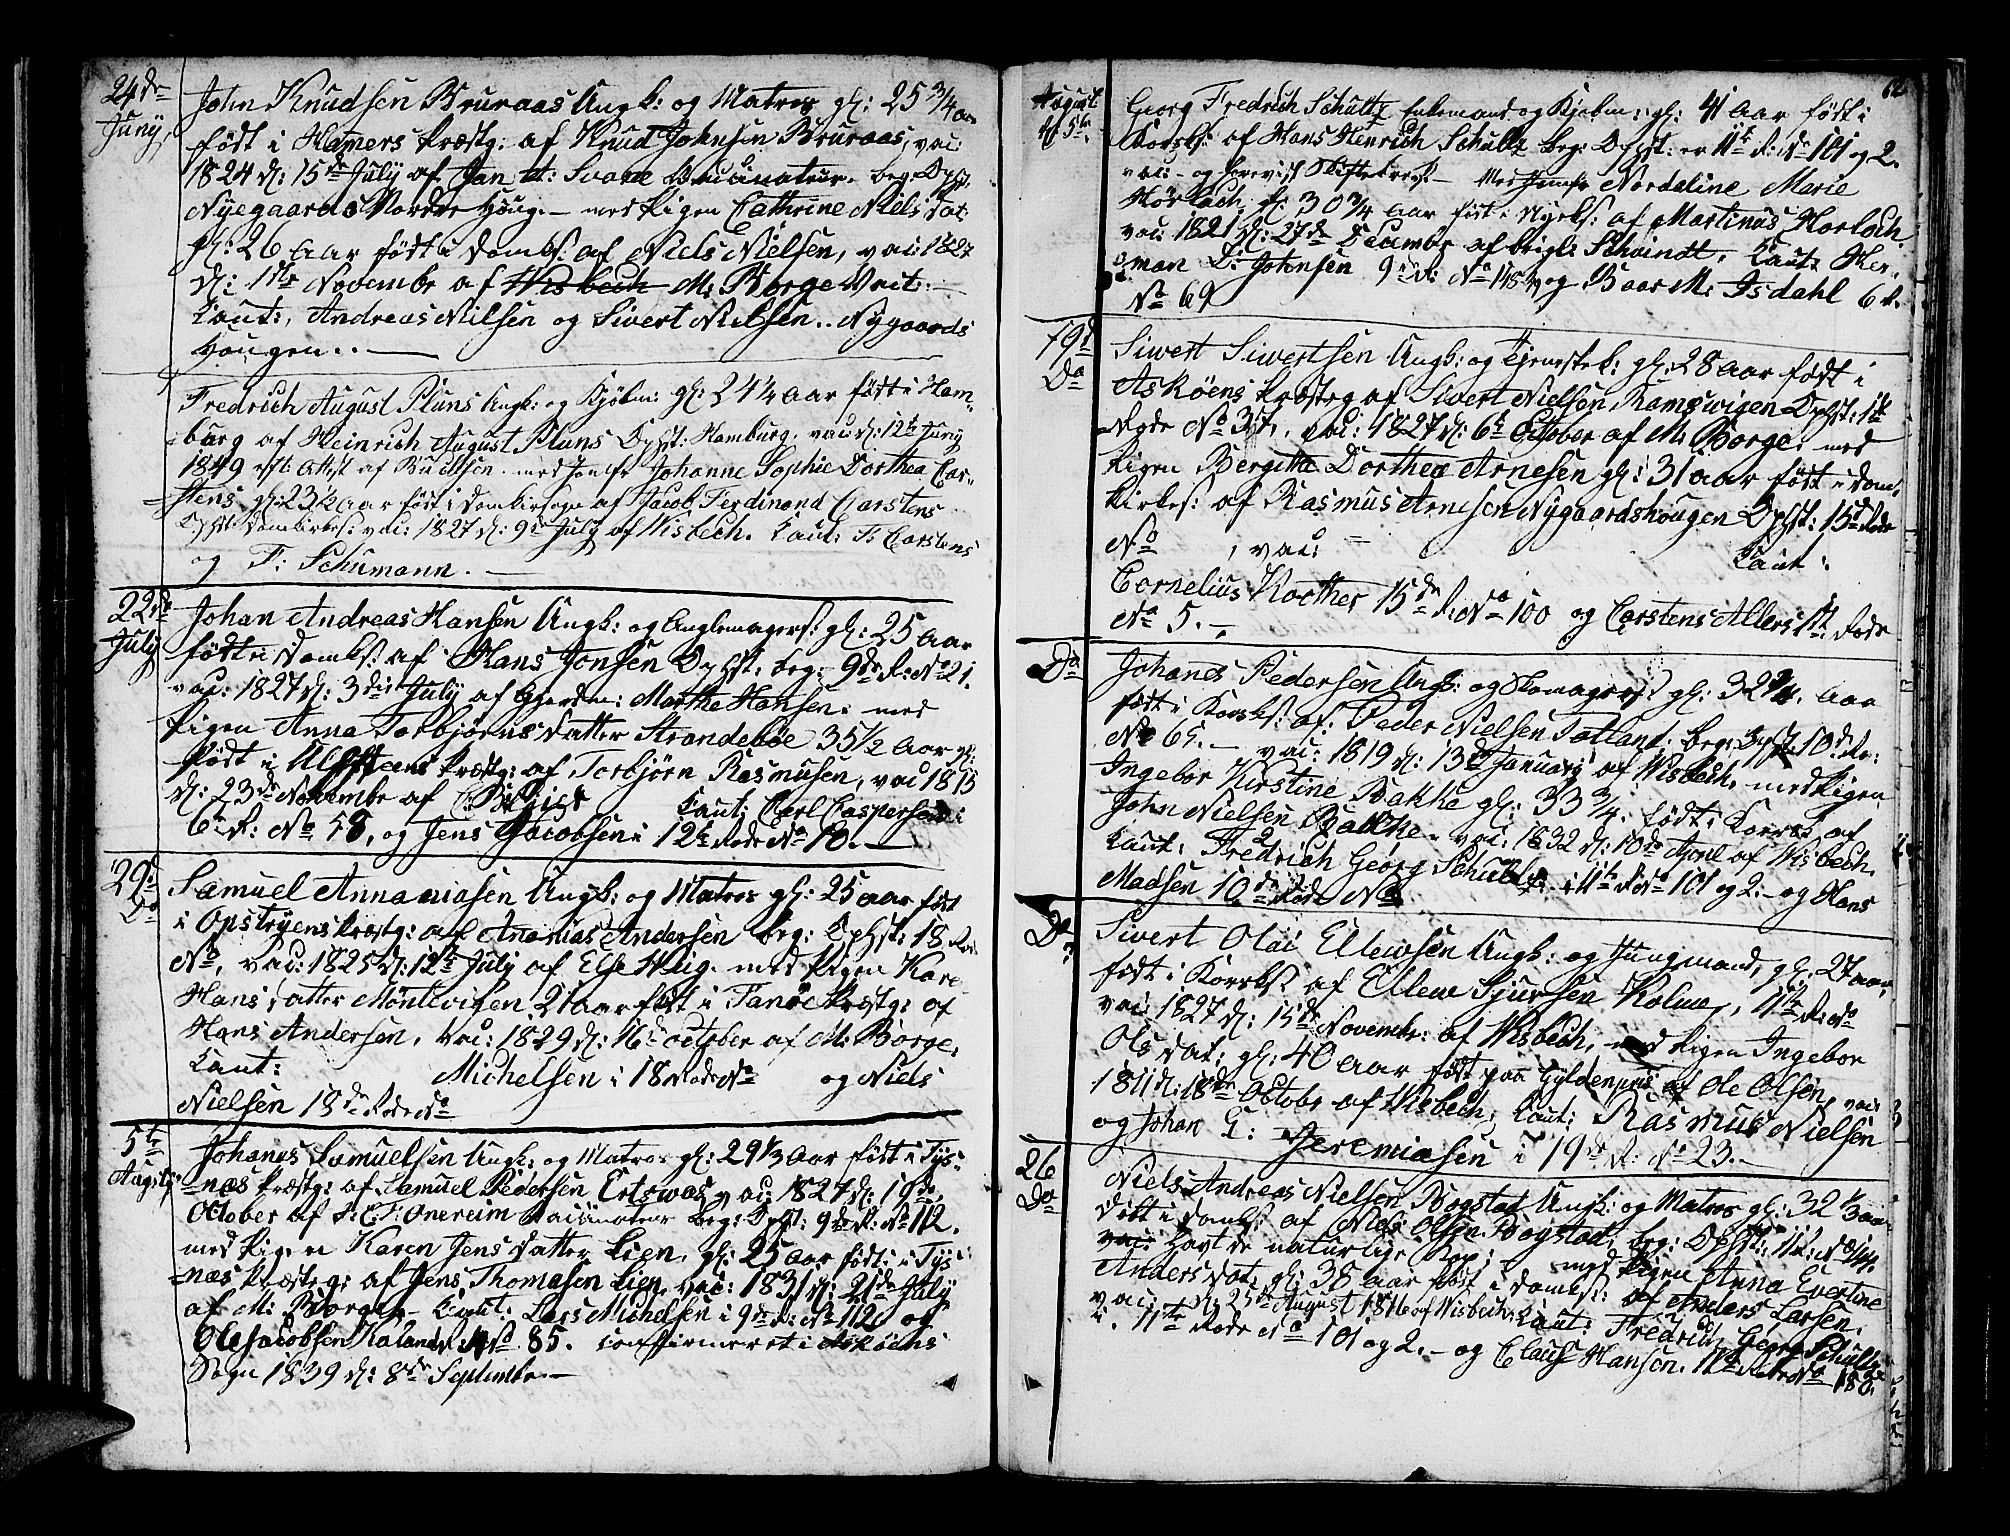 24de
Juny,
John Knudsen Bruraas Ungk: og Matros gl: 25 3/4 aar
født i Hamers Præstg: af Knud Johnsen Bruraas, vac:
1824 d: 15de July af Jan H: Svane Vaccinateur. beg: Ophst:
Nyegaards Nordre Houg. – med Pigen Cathrine Niels Dat:
gl: 26 Aar født i Domks: af Niels Nielsen, vac: 1827
d: 1ste Novembr af Wisbech M: Borge Vait:
Caut:, Andreas Nilsen og Sivert Nielsen.. Nygaards
Hougen..
Fredrich August Pluns Ungk: og Kjøbm: gl: 24 1/2 Aar født i Ham-
burg af Heinrich August Pluns Ophst: Hamburg. vac: d: 12te Juny
1849 af Buelssen. med Jomfr Johanne Sophie Dorthea Car-
stens gl: 23 1/2 Aar født i Domkirsogn af Jacob Ferdinand Carstens
Ophst: Domkirkes: vac: 1827 d: 9de July af Wisbech. Caut: F: Carstens
og F: Schumann.
22de
July
Johan Andreas Hansen Ungk: og gl: 25 Aar
født i Domks: af Hans Jonsen Ophst: beg: 9de R: No 21.
vac: 1827 d: 3die July af Gjordm: Marthe Hansen. med
Pigen Anna Torbjørns Datter Strandebøe 35 1/2 Aar gl:
født i Præstg: af Torbjørn Rasmusen, vac 1815
d: 23de Novembr af Caut: Carl Caspersen i
6te R: No 58, og Jens Jacobsen i 12te Rode No 10.
29de
Do
Samuel Annaniasen Ungk: og Matros gl: 25 aar født
i Opstryens Præstg: af Ananias Andersen beg: Ophst: 18 Rode
No, vac: 1825 d: 12te July af Else Heig. med Pigen Kare
Hans Datter Møntevigen 21 aar født i Fanøe Præstg: af
Hans Andersen, vac: 1829 d: 16de october af M: Borge.
Caut: Michelsen i 18 Rode No og Niels
Nielsen 18de Rode No
5te
August
Johanes Samuelsen Ungk: og Matros gl: 29 1/3 Aar født i Tys-
næs Præstg: af Samuel Pedersen Ertswaag vac: 1827 d: 19de
October af Onereim Vaccinateur beg: Ophst: 9de R: No 112.
med Pigen Karen Jens Datter Lien, gl: 25 aar født: i Tys-
næs Præstg: af Jens Thomasen Lien, vac: 1831 d: 21de July
af M: Borge. – Caut: Lars Michelsen i 9de R: No 112 og
Ole Jacobsen No 85. confirmeret i Askøens
Sogn 1839 d: 8de Septembr. –
62
August
d: 5te.
Georg Fredrich Schultz Enkemand og Kjøbm: gl: 41 Aar født i
Korsks: af Hans Henrich Schultz beg: Ophst: er 11te R: No 101 og 2.
vac: – og forevist Skiftebrev. – Med Jomfr Nordaline Marie
Hørloch gl: 30 3/4 aar født i Nyeks: af Martinus Horloch.
vac: 1821 d: 27de Decembr af Brigl: Schvindt, Caut: Her-
man D: Johnsen 9de R: No 118 og Baar M: Isdahl 6 R.
No 69
19de
Do
Siwert Siwertsen Ungk: og Tjenestek: gl: 28 aar født i
Askøens Præstg af Sivert Nielsen Ramswigen Ophst: 1te
Rode No 37, vac: 1827 d: 6te October af M: Borge. med
Pigen Bergitte Dorthea Arnesen gl: 31 aar født i Dom-
kirkes: af Rasmus Arnesen Nygaardshougen Ophst: 15de Rode
No , vac: Caut:
Cornelius Koother 15de R: No 100 og Carstens Allers 1te Rode
No 5.
Do
Johanes Pedersen Ungk: og Skomagers: gl: 32 3/4. Aar
født i Korsks: af: Peder Nielsen Totland. beg: Ophst 10de Ro:
No 65. – vac: 1819 d: 13de January af Wisbech, med Pigen
Ingebor Kirstine Bakke gl: 33 3/4. født i Korsks: af
John Nielsen Bakke. vac: 1832 d: 10de April af Wisbech.
Caut: Fredrich Georg Schultz i 11te R: No 101 og 2. – og Hans
Madsen 10de Rode No
Do
Sivert Olai Ellewsen Ungk: og Jungmand, gl: 27 aar,
født i Korsks: af Ellew Sjursen Kolme, 11te R: No
vac: 1827 d: 15de Novembr: af Wisbech, med Pigen Ingebor
Ols Dat: gl: 40 Aar født paa Gyldenpris af Ole Olsen, vac:
1811 d: 18de Octobr af Wisbech, Caut: Rasmus Nielsen
og Johan G: Jeremiasen i 19de R: No 23. –
26
Do
Niels Andreas Nielsen Bogstad Ungk: og Matros gl: 32 1/3 aar
Døbt i Domks: af Niels Olsen Bogstad, beg: Ophst: 11te R: No 144.
vac: havt de naturlige Kop: med Pigen Anna Evertine
Anders Dat. gl: 38 aar født i Domks: af Anders Larsen.
vac: d: 25de August 1816 af Wisbech. Caut: Fredrich Georg Schultz
i. 11te Rode No 101 og 2. – og Claus Hansen. 11te Rode No 180.